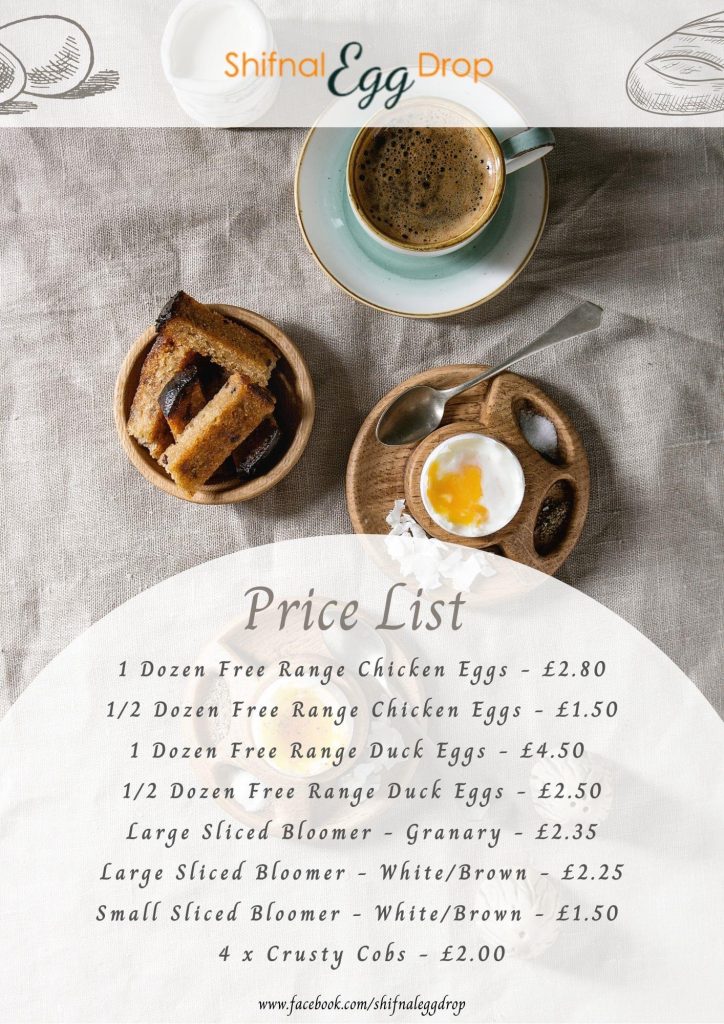 Shifnal Egg Drop
Price List
1 Dozen Free Range Chicken Eggs - £2.80
1/2 Dozen Free Range Chicken Eggs - £1.50
1 Dozen Free Range Duck Eggs - £4.50
1/2 Dozen Free Range Duck Eggs - £2.50
Large Sliced Bloomer - Granary - £2.35
Large Sliced Bloomer - White/Brown - £2.25
Small Sliced Bloomer - White/Brown - £1.50
4 x Crusty Cobs - £2.00
www.facebook.com/shifnaleggdrop